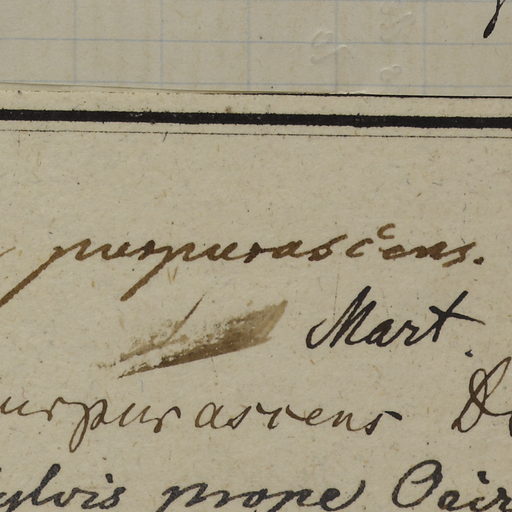 purpurascens.
Mart.
urpurascens D
ylvis prope